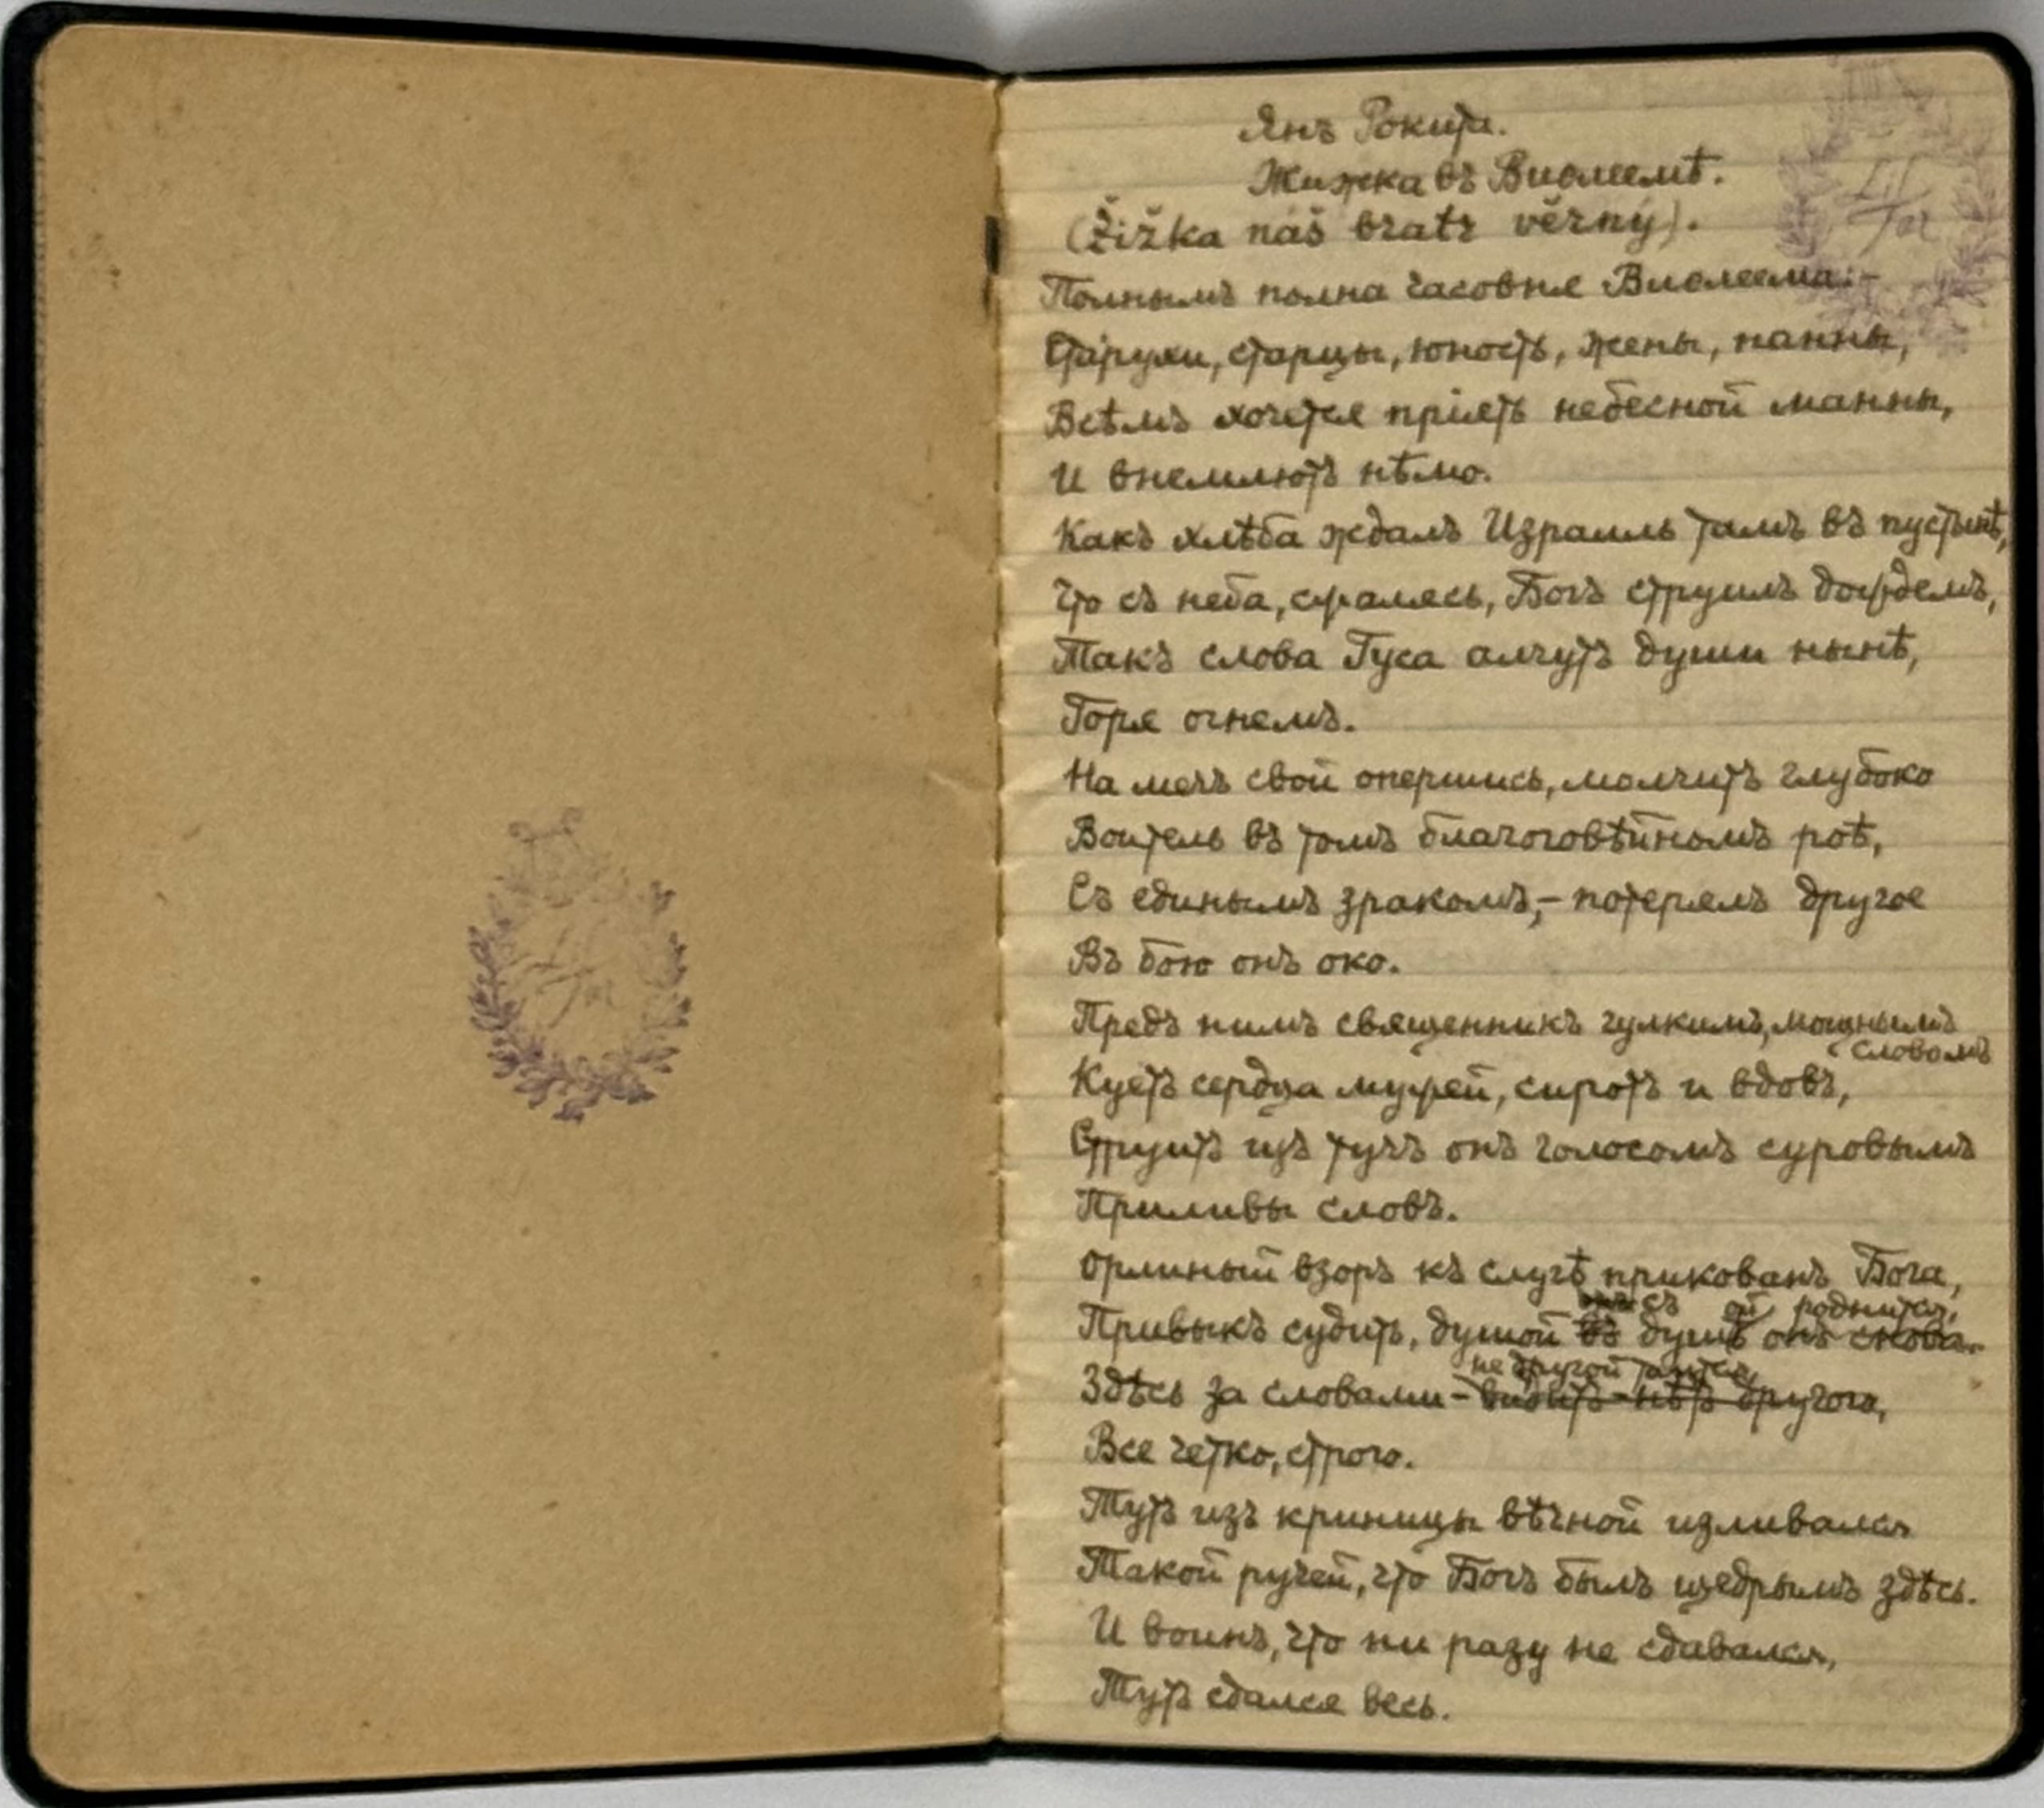 Янъ Рокита.
Жижка въ Виѳлеемѣ.
(Žižka náš bratr věrný).
Полнымъ полна часовня Виѳлеема:-
Старухи, старцы, юность, жены, панны,
Всѣмъ хочется пріять небесной манны,
И внемлютъ нѣмо.
Какъ хлѣба ждалъ Израиль тамъ въ пустынѣ,
Что съ неба, сжалясь, Богъ струилъ дождемъ,
Такъ слова Гуса алчутъ души нынѣ,
Горя огнемъ.
На мечъ свой опершись, молчитъ глубоко
Воитель въ томъ благоговѣйномъ роѣ,
Съ единымъ зракомъ,- потерялъ другое
Въ бою онъ око.
Предъ нимъ священникъ гулкимъ, мощнымъ
словомъ
Куетъ сердца мужей, сиротъ и вдовъ,
Струитъ изъ тучъ онъ голосомъ суровымъ
Приливы словъ.
Орлиный взоръ къ слугѣ прикованъ Бога,
съ ой роднится,
Привыкъ судить, душой въ душѣ онъ снова.
не другой таится,
Здѣсь за словами - видитъ - нѣтъ другого,
Все четко, строго.
Тутъ изъ криницы вѣчной изливался
Такой ручей, что Богъ былъ щедрымъ здѣсь.
И воинъ, что ни разу не сдавался,
Тутъ сдался весь.